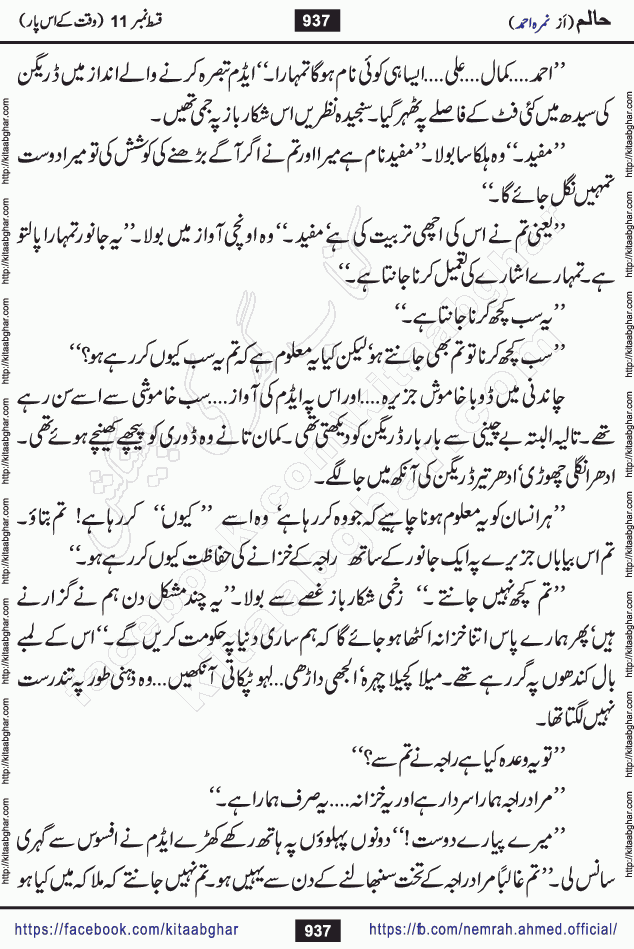 حالم (از نمرہ احمد)
937
قسط نمبر 11 (وقت کے اس پار)
’’احمد....کمال....علی....ایسا ہی کوئی نام ہو گا تمہارا۔‘‘ ایڈم تبصرہ کرنے والے انداز میں ڈریگن
کی سیدھ میں کئی فٹ کے فاصلے پہ ٹھہر گیا۔ سنجیدہ نظریں اس شکار باز پہ جمی تھیں۔
’’مفید۔‘‘ وہ ہلکا سا بولا۔ ’’مفید نام ہے میرا اور تم نے اگر آگے بڑھنے کی کوشش کی تو میرا دوست
تمہیں نگل جائے گا۔‘‘
’’یعنی تم نے اس کی اچھی تربیت کی ہے‘ مفید۔‘‘ وہ اونچی آواز میں بولا۔ ’’یہ جانور تمہارا پالتو
ہے۔ تمہارے اشارے کی تعمیل کرنا جانتا ہے۔‘‘
’’یہ سب کچھ کرنا جانتا ہے۔‘‘
’’سب کچھ کرنا تو تم بھی جانتے ہو‘ لیکن کیا یہ معلوم ہے کہ تم یہ سب کیوں کر رہے ہو؟‘‘
چاندنی میں ڈوبا خاموش جزیرہ....اور اس پہ ایڈم کی آواز....سب خاموشی سے اسے سن رہے
تھے۔ تالیہ البتہ بے چینی سے بار بار ڈریگن کو دیکھتی تھی۔ کمان تانے وہ ڈوری کو پیچھے کھینچے ہوئے تھی۔
ادھر انگلی چھوڑی‘ ادھر تیر ڈریگن کی آنکھ میں جا لگے۔
’’ہر انسان کو یہ معلوم ہونا چاہیے کہ جو وہ کر رہا ہے‘ وہ اسے ’’کیوں‘‘ کر رہا ہے! تم بتاؤ۔
تم اس بیاباں جزیرے پہ ایک جانور کے ساتھ راجہ کے خزانے کی حفاظت کیوں کر رہے ہو۔‘‘
’’تم کچھ نہیں جانتے۔‘‘ زخمی شکار باز غصے سے بولا۔ ’’یہ چند مشکل دن ہم نے گزارنے
ہیں‘ پھر ہمارے پاس اتنا خزانہ اکٹھا ہو جائے گا کہ ہم ساری دنیا پہ حکومت کریں گے۔‘‘ اس کے لمبے
بال کندھوں پہ گر رہے تھے۔ میلا کچیلا چہرہ‘ الجھی داڑھی...لہو ٹپکاتی آنکھیں....وہ ذہنی طور پہ تندرست
نہیں لگتا تھا۔
’’تو یہ وعدہ کیا ہے راجہ نے تم سے؟‘‘
’’مراد راجہ ہمارا سردار ہے اور یہ خزانہ....یہ صرف ہمارا ہے۔‘‘
’’میرے پیارے دوست!‘‘ دونوں پہلوؤں پہ ہاتھ رکھے کھڑے ایڈم نے افسوس سے گہری
سانس لی۔ ’’تم غالباً مراد راجہ کے تخت سنبھالنے کے دن سے یہیں ہو۔ تم نہیں جانتے کہ ملاکہ میں کیا ہو
https://facebook.com/kitaabghar
937
https://fb.com/nemrah.ahmed.official/
http://kitaabghar.com
facebook.com/kitaabghar
kitaabghar.com